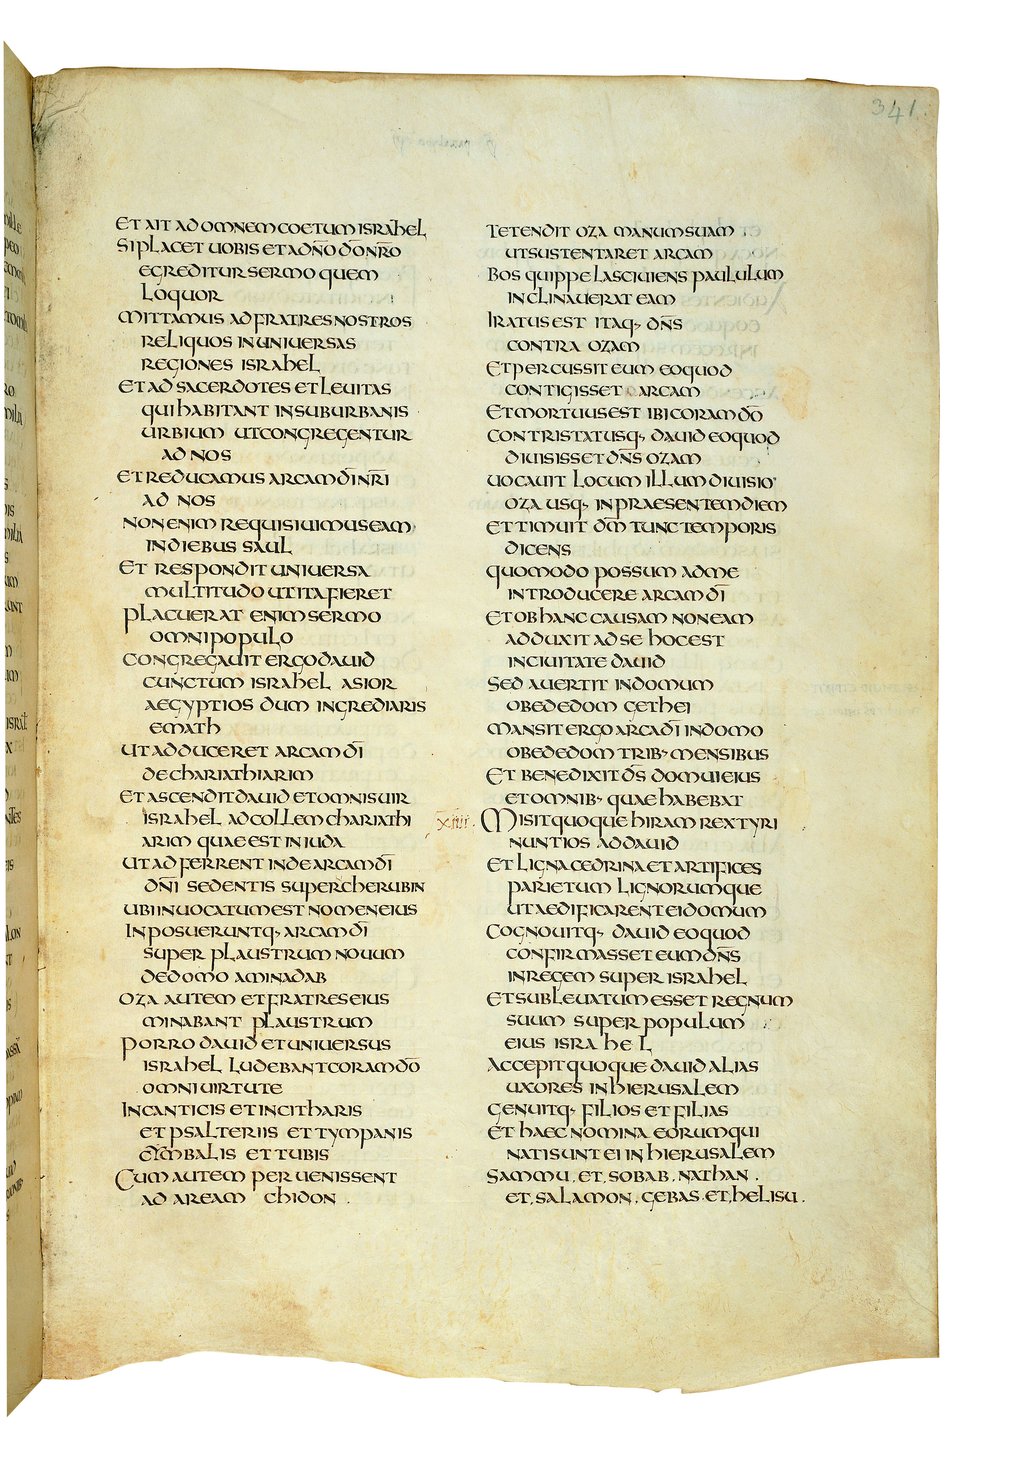 341.
ET AIT AD OMNEM COETUM ISRAHEL
SI PLACET UOBIS ET A DÑO DO NRO
EGREDITUR SERMO QUEM
LOQUOR
MITTAMUS AD FRATRES NOSTROS
RELIQUOS IN UNIUERSAS
REGIONES ISRAHEL
ET AD SACERDOTES ET LEUITAS
QUI HABITANT IN SUBURBANIS
URBIUM UT CONGREGENTUR
AD NOS
ET REDUCAMUS ARCAM DĪ NRĪ
AD NOS
NON ENIM REQUISIUIMUS EAM
IN DIEBUS SAUL
ET RESPONDIT UNIUERSA
MULTITUDO UT ITA FIERET
PLACUERAT ENIM SERMO
OMNI POPULO
CONGREGAUIT ERGO DAUID
CUNCTUM ISRAHEL A SIOR
AEGYPTIOS DUM INGREDIARIS
EMATH
UT ADDUCERET ARCAM DĪ
DE CHARIATHIARIM
ET ASCENDIT DAUID ET OMNIS UIR
ISRAHEL AD COLLEM CHARIATHI
ARIM QUAE EST IN IUDA
UT ADFERRENT INDE ARCAM DĪ
DÑI SEDENTIS SUPER CHERUBIN
UBI INUOCATUM EST NOMEN EIUS
INPOSUERUNTQ· ARCAM DĪ
SUPER PLAUSTRUM NOUUM
DE DOMO AMINADAB
OZA AUTEM ET FRATRES EIUS
MINABANT PLAUSTRUM
PORRO DAUID ET UNIUERSUS
ISRAHEL LUDEBANT CORAM DŌ
OMNI UIRTUTE
IN CANTICIS ET IN CITHARIS
ET PSALTERIIS ET TYMPANIS
CYMBALIS ET TUBIS
CUM AUTEM PERUENISSENT
AD AREAM CHIDON .
TETENDIT OZA MANUM SUAM
UT SUSTENTARET ARCAM
BOS QUIPPE LASCIUIENS PAULULUM
INCLINAUERAT EAM
IRATUS EST ITAQ· DÑS
CONTRA OZAM
ET PERCUSSIT EUM EO QUOD
CONTIGISSET ARCAM
ET MORTUUS EST IBI CORAM DŌ
CONTRISTATUSQ· DAUID EO QUOD
DIUISISSET DÑS OZAM
UOCAUIT LOCUM ILLUM DIUISIO
OZA USQ· IN PRAESENTEM DIEM
ET TIMUIT DM̄ TUNC TEMPORIS
DICENS
QUOMODO POSSUM AD ME
INTRODUCERE ARCAM DĪ
ET OB HANC CAUSAM NON EAM
ADDUXIT AD SE HOC EST
IN CIUITATE DAUID
SED AUERTIT IN DOMUM
OBEDEDOM GETHEI
MANSIT ERGO ARCA DĪ IN DOMO
OBEDEDOM TRIB· MENSIBUS
ET BENEDIXIT DS̄ DOMUI EIUS
ET OMNIB· QUAE HABEBAT
XIIII. MISIT QUOQUE HIRAM REX TYRI
NUNTIOS AD DAUID
ET LIGNA CEDRINA ET ARTIFICES
PARIETUM LIGNORUMQUE
UT AEDIFICARENT EI DOMUM
COGNOUITQ· DAUID EO QUOD
CONFIRMASSET EUM DÑS
IN REGEM SUPER ISRAHEL
ET SUBLEUATUM ESSET REGNUM
SUUM SUPER POPULUM
EIUS ISRAHEL
ACCEPIT QUOQUE DAUID ALIAS
UXORES IN HIERUSALEM
GENUITQ· FILIOS ET FILIAS
ET HAEC NOMINA EORUM QUI
NATI SUNT EI IN HIERUSALEM
SAMMU . ET . SOBAB . NATHAN .
ET . SALAMON . GEBAS . ET . HELISU .